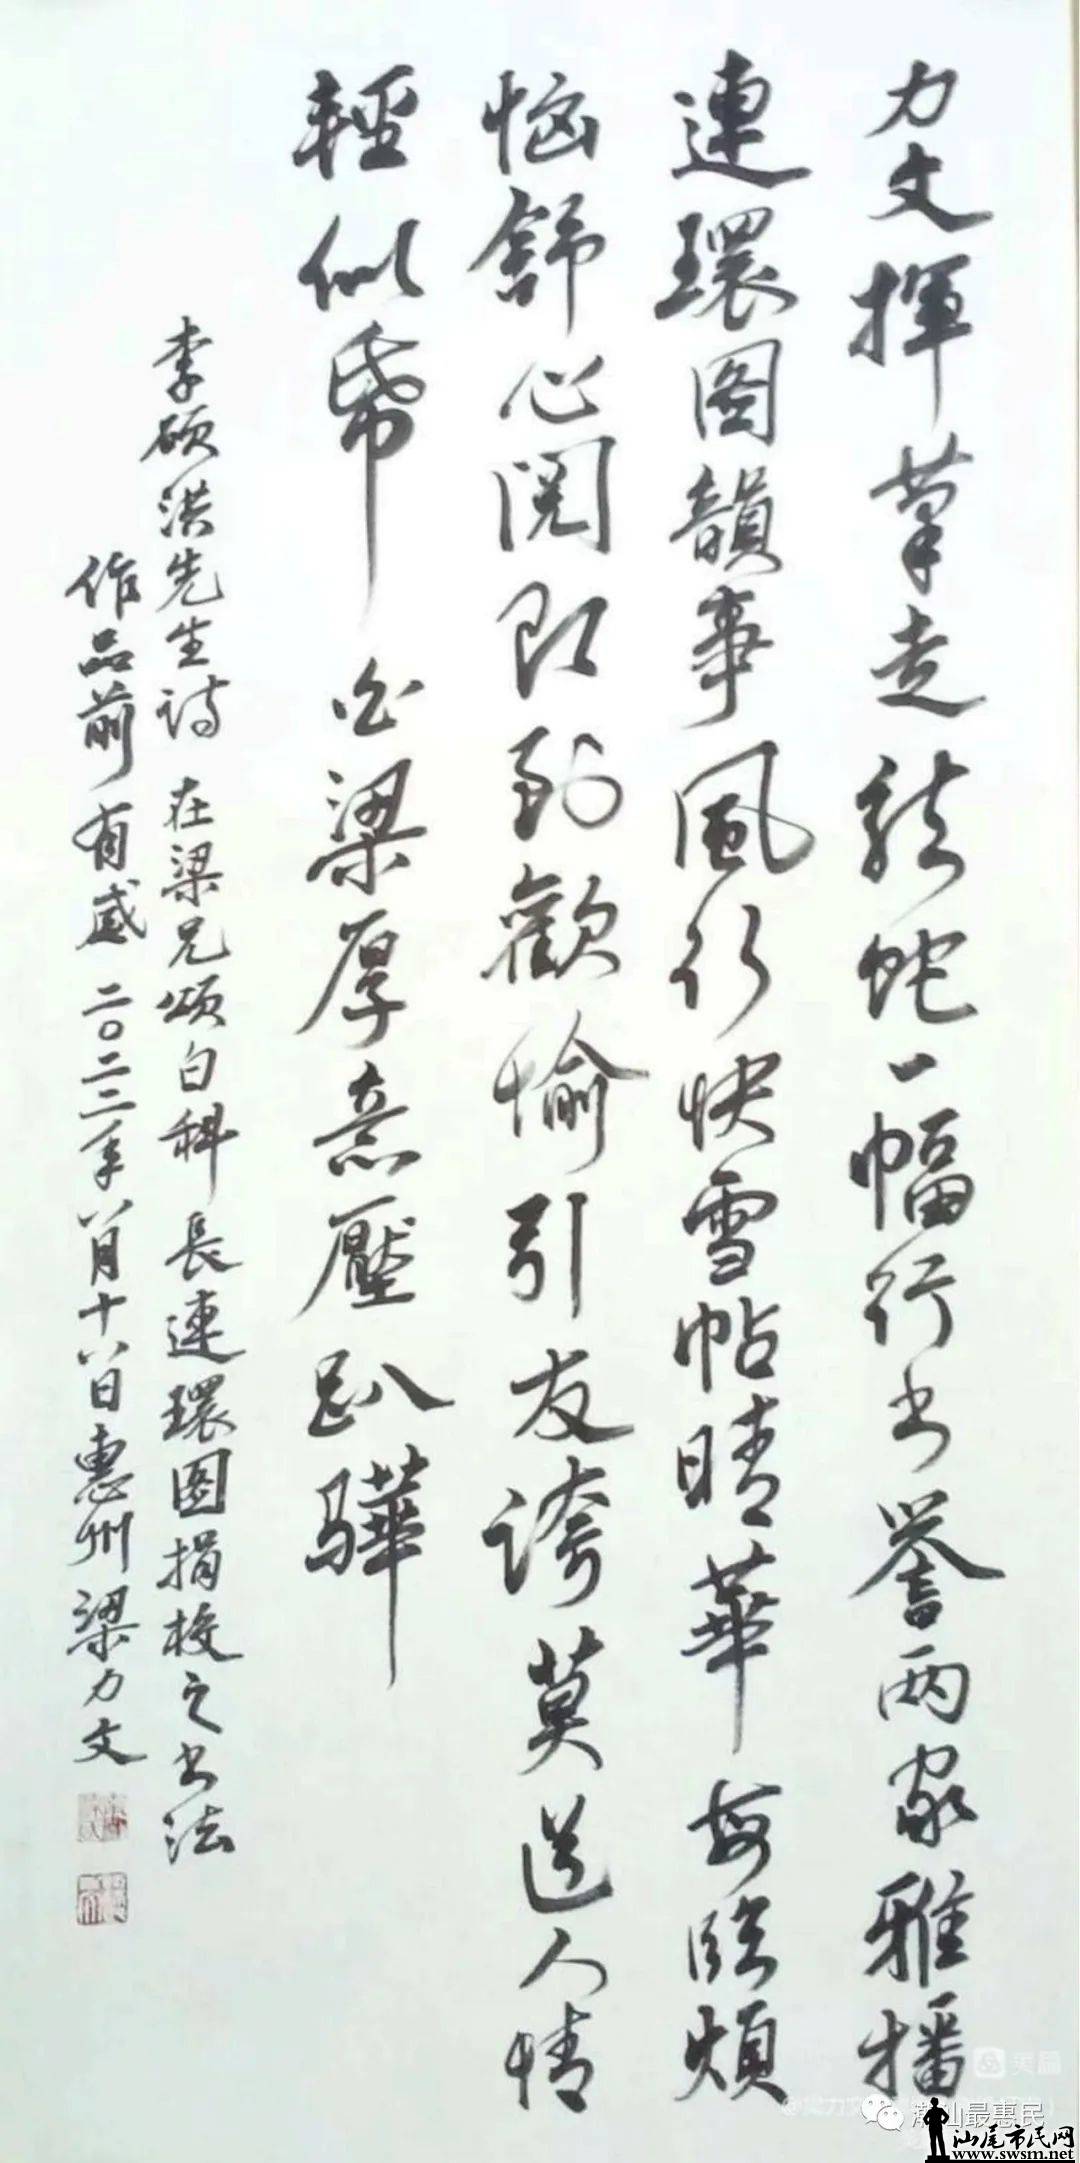 力文揮筆走龍蛇一幅行书譽两家雅播
連環圖韻事風行快雪帖晴華每臨煩
惱舒心閱既到歡愉引友誇莫道人情
輕似帋白梁厚意壓趴驊
李碩洪先生詩在梁兄頌白科長連環圖捐校之书法
作品前有感二〇二二年八月十八日惠州梁力文
美篇
潮汕最惠民
汕尾市民网
www.swsm.net